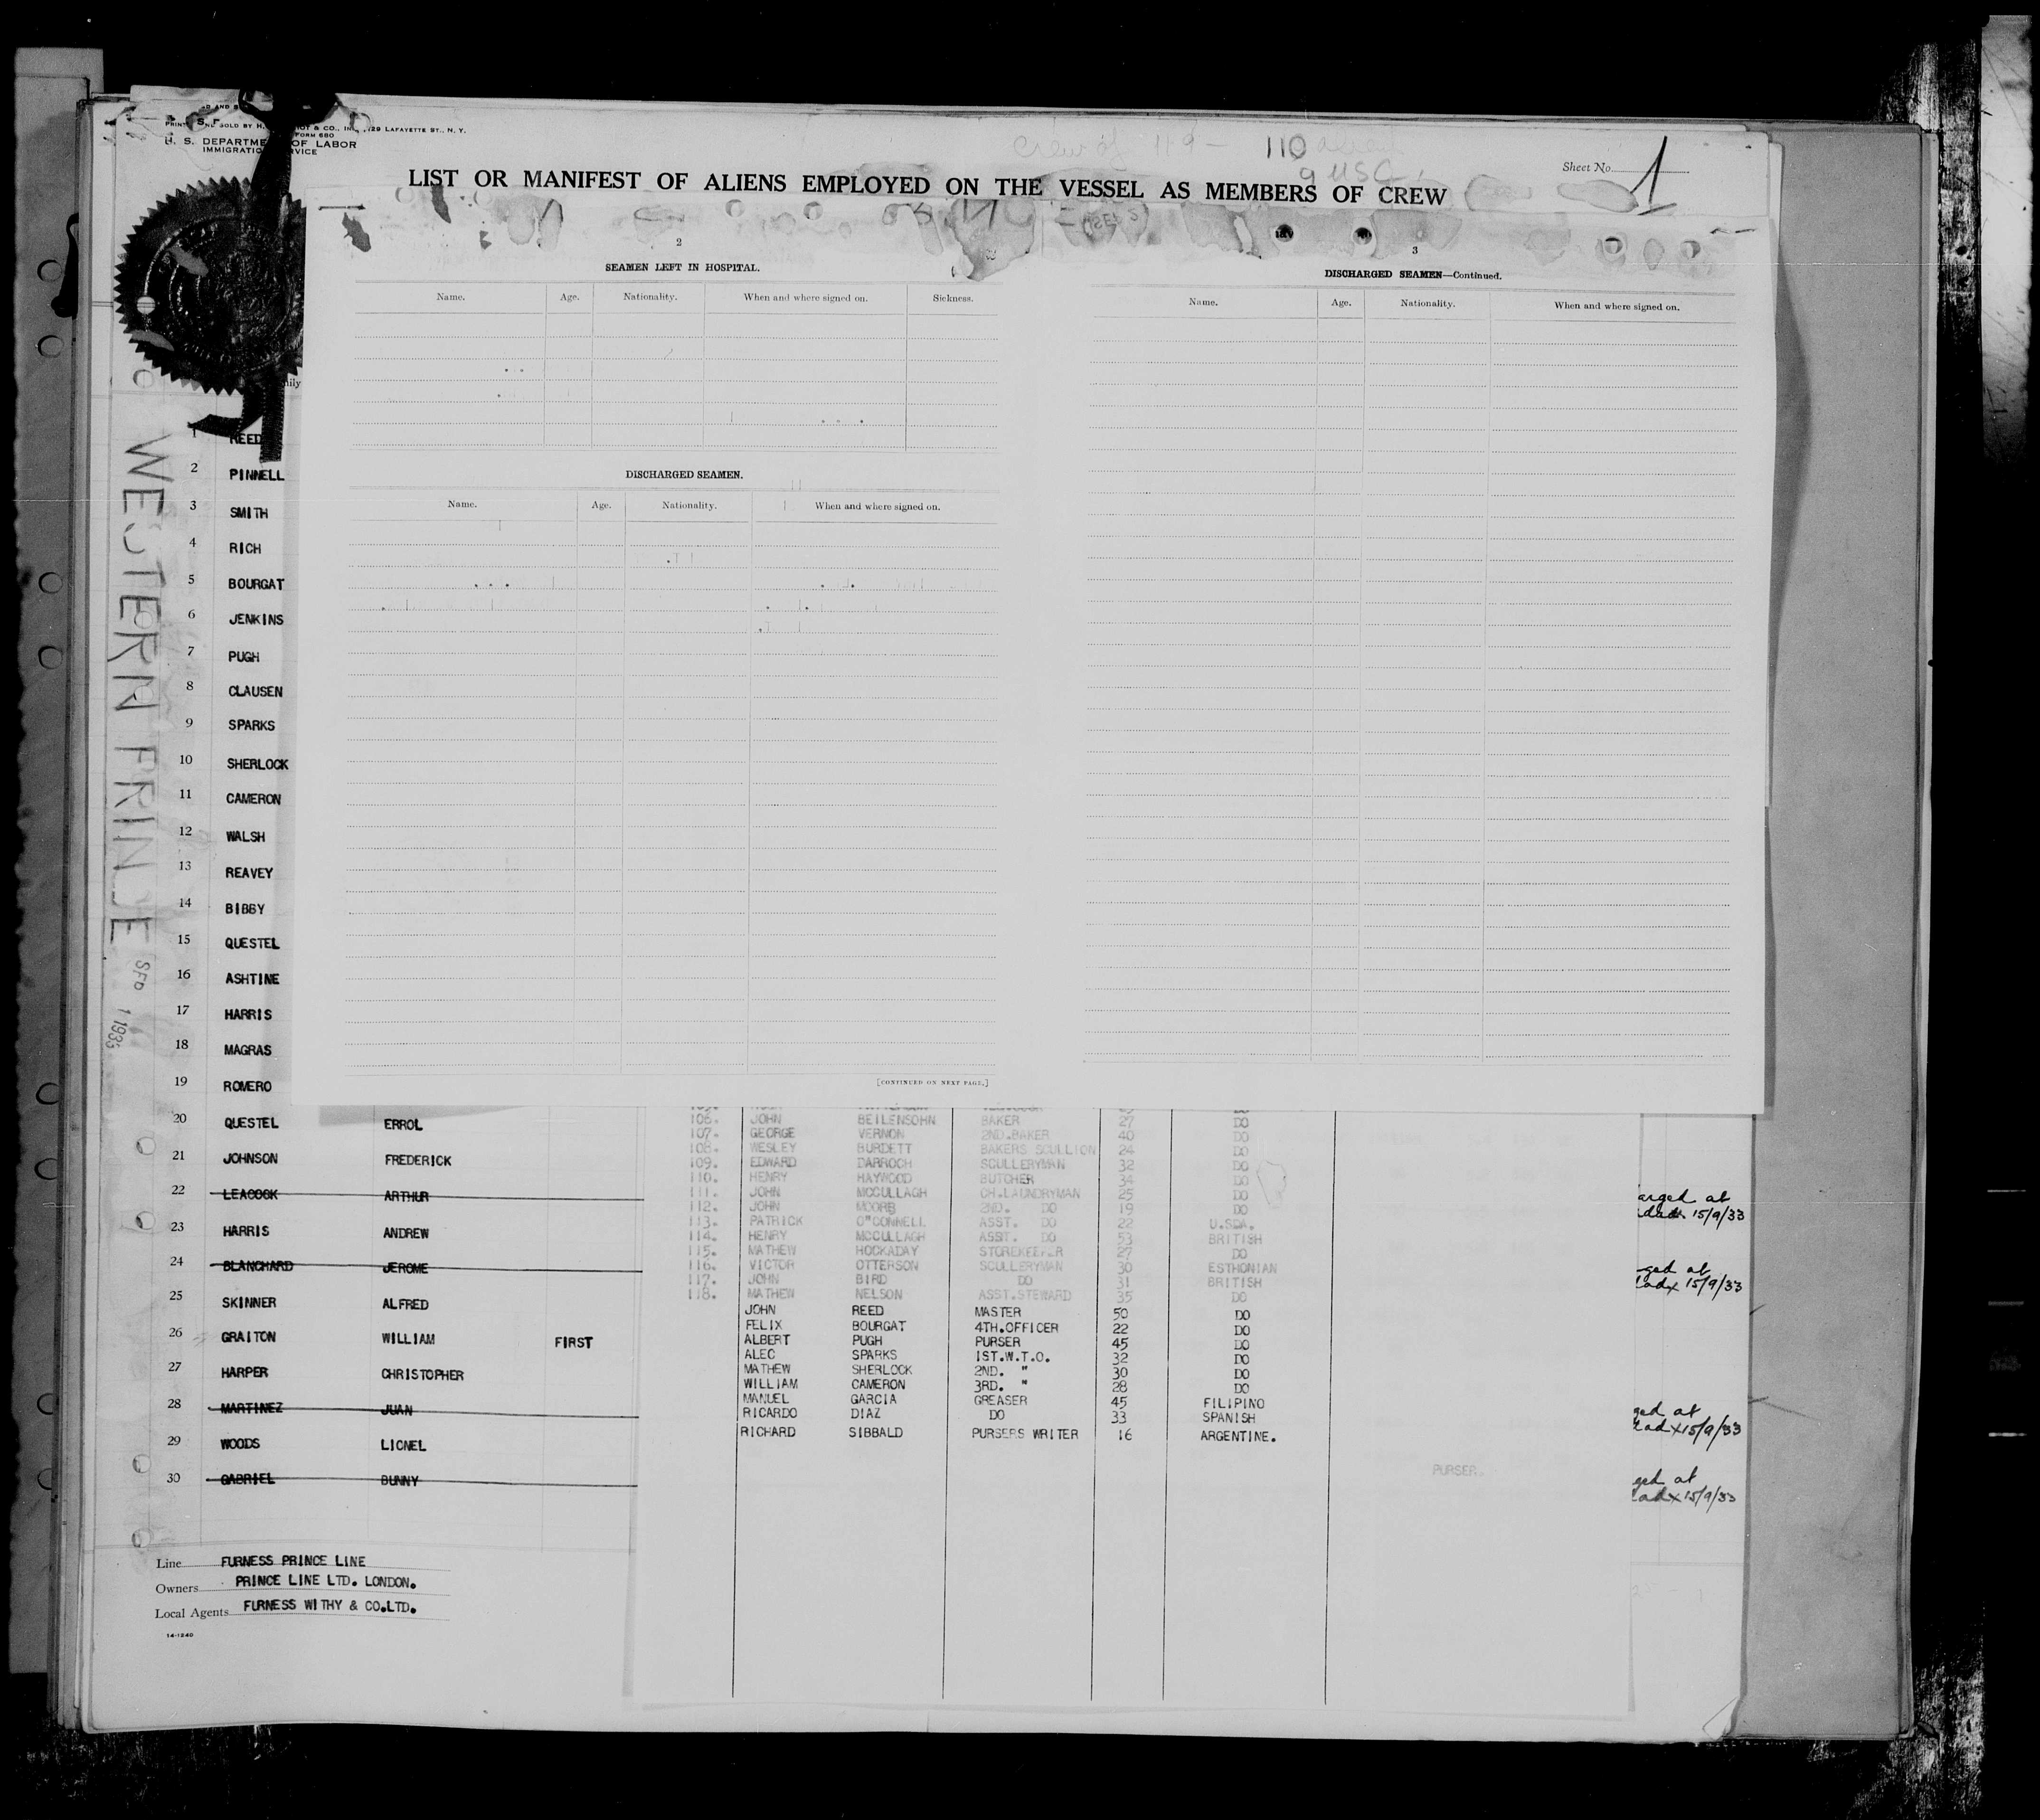 U. S. DEPARTME OF LABOR
IMMIGRATIO RVICE
Crew of 119 - 110
9 USC
Sheet No. 1
LIST OR MANIFEST OF ALIENS EMPLOYED ON THE VESSEL AS MEMBERS OF CREW
2
SEAMEN LEFT IN HOSPITAL.
Name. Age. Nationality. When and where signed on. Sickness.
DISCHARGED SEAMEN.
Name. Age. Nationality. When and where signed on.
[CONTINUED ON NEXT PAGE.]
3
DISCHARGED SEAMEN—Continued.
Name. Age. Nationality. When and where signed on.
WESTERN PRINCE
1 REED
2 PINNELL
3 SMITH
4 RICH
5 BOURGAT
6 JENKINS
7 PUGH
8 CLAUSEN
9 SPARKS
10 SHERLOCK
11 CAMERON
12 WALSH
13 REAVEY
14 BIBBY
15 QUESTEL
16 ASHTINE
17 HARRIS
18 MAGRAS
19 ROMERO
20 QUESTEL ERROL
21 JOHNSON FREDERICK
22 LEACOCK ARTHUR
23 HARRIS ANDREW
24 BLANCHARD JEROME
25 SKINNER ALFRED
26 GRAITON WILLIAM FIRST
27 HARPER CHRISTOPHER
28 MARTINEZ JUAN
29 WOODS LIONEL
30 GABRIEL BUNNY
106. JOHN BEILENSOHN BAKER 27 DO
107. GEORGE VERNON 2ND.BAKER 40 DO
108. WESLEY BURDETT BAKERS SCULLION 24 DO
109. EDWARD DARROCH SCULLERYMAN 32 DO
110. HENRY HAYWOOD BUTCHER 34 DO
111. JOHN MCCULLAGH CH.LAUNDRYMAN 25 DO
112. JOHN MOORE 2ND. DO 19 DO
113. PATRICK O"CONNELL ASST. DO 22 U.SDA.
114. HENRY MCCULLAGH ASST. DO 53 BRITISH
115. MATHEW HOCKADAY STOREKEEPER 27 DO
116. VICTOR OTTERSON SCULLERYMAN 30 ESTHONIAN
117. JOHN BIRD DO 31 BRITISH
118. MATHEW NELSON ASST.STEWARD 35 DO
JOHN REED MASTER 50 DO
FELIX BOURGAT 4TH.OFFICER 22 DO
ALBERT PUGH PURSER 45 DO
ALEC SPARKS 1ST.W.T.O. 32 DO
MATHEW SHERLOCK 2ND. " 30 DO
WILLIAM CAMERON 3RD. " 28 DO
MANUEL GARCIA GREASER 45 FILIPINO
RICARDO DIAZ DO 33 SPANISH
RICHARD SIBBALD PURSERS WRITER 16 ARGENTINE.
PURSER.
arged at
dad x 15/9/33
ged at
dad x 15/9/33
ged at
dad x 15/9/33
ged at
dad x 15/9/33
Line FURNESS PRINCE LINE
Owners PRINCE LINE LTD. LONDON.
Local Agents FURNESS WITHY & CO.LTD.
14-1240